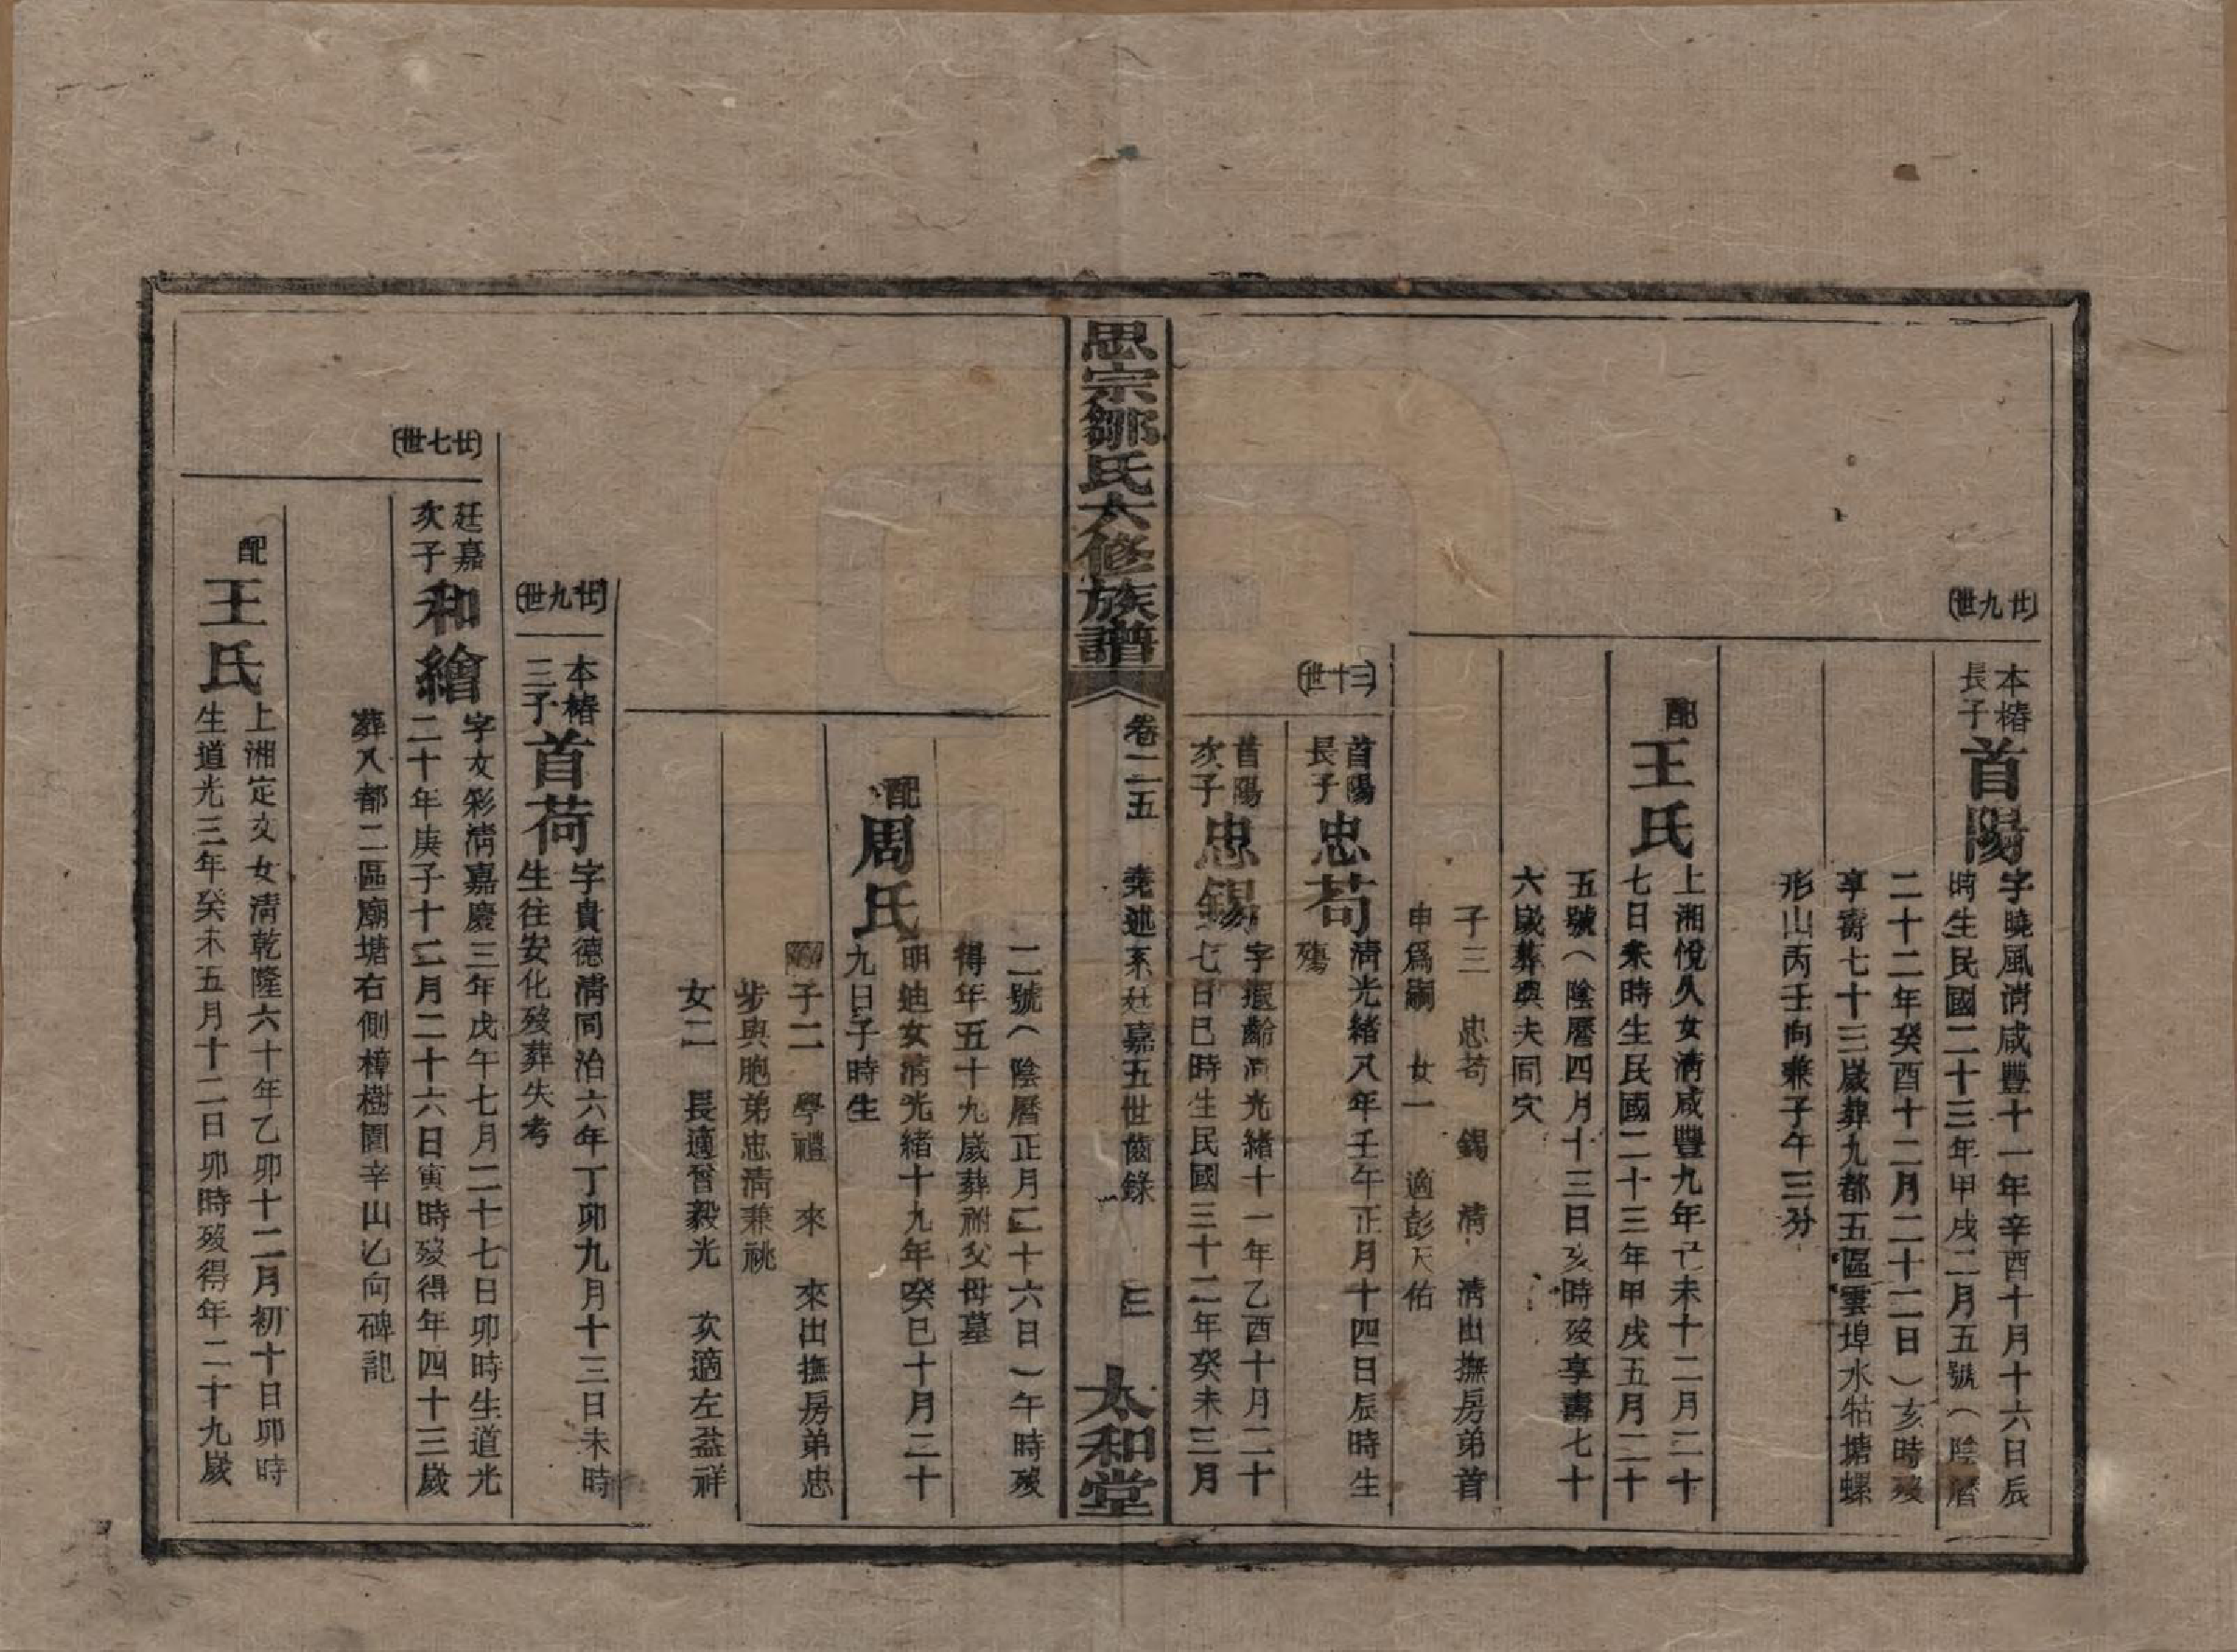 (廿九世)
本椿長子
首陽
字曉風清咸豐十一年辛酉十月十六日辰
時生民國二十三年甲戌二月五號(陰曆
二十二年癸酉十二月二十二日)亥時歿
享壽七十三歲葬九都五區雲埠水牯塘螺
形山丙壬向兼子午三分
配
王氏
上湘悅久女清咸豐九年己未十二月二十
七日未時生民國二十三年甲戌五月二十
五號(陰曆四月十三日亥時歿享壽七十
六歲葬與夫同穴
子三 忠苟 錫 清 清出撫房弟首
申爲嗣 女一 適彭天佑
(三十世)
首陽長子
忠苟
清光緒八年壬午正月十四日辰時生
殤
首陽次子
忠錫
字遐齡清光緒十一年乙酉十月二十
七日巳時生民國三十二年癸未三月
思宗鄒氏大修族譜
卷二五 堯述系廷嘉五世齒錄 三
太和堂
二號(陰曆正月二十六日)午時歿
得年五十九歲葬祔父母墓
配
周氏
明廸女清光緒十九年癸巳十月二十
九日子時生
子二 學禮 來 來出撫房弟忠
步與胞弟忠清兼祧
女二 長適晉毅光 次適左益祥
(廿九世)
本椿三子
首荷
字貴德清同治六年丁卯九月十三日未時
生往安化歿葬失考
(廿七世)
廷嘉次子
和繪
字文彩清嘉慶三年戊午七月二十七日卯時生道光
二十年庚子十二月二十六日寅時歿得年四十三歲
葬八都二區廟塘右側樟樹園辛山乙向碑記
配
王氏
上湘定文女清乾隆六十年乙卯十二月初十日卯時
生道光三年癸未五月十二日卯時歿得年二十九歲